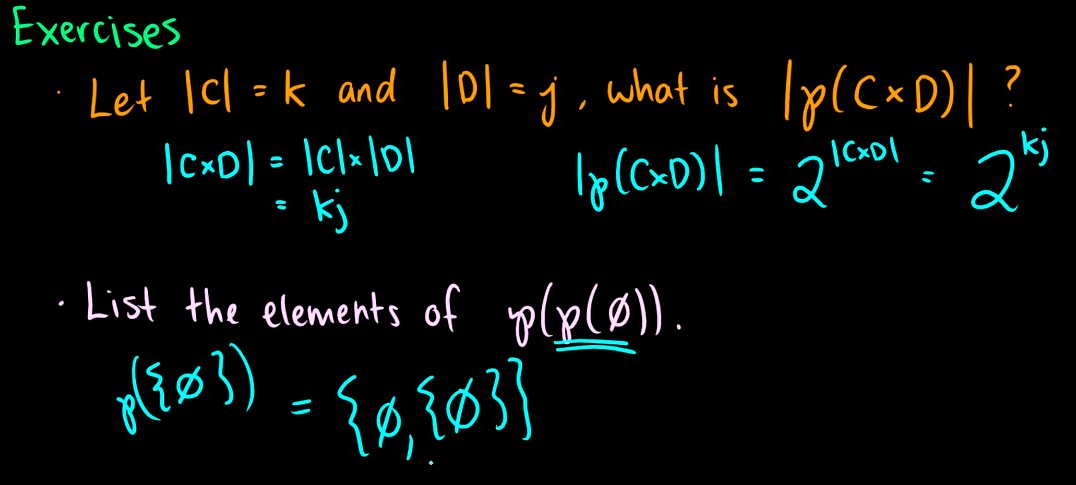 Exercises
· Let |C| = k and |D| = j, what is |℘(C×D)| ?
|C×D| = |C|×|D|
= kj
|℘(C×D)| = 2^|C×D| = 2^kj
· List the elements of ℘(℘(∅)).
℘({∅}) = {∅,{∅}}